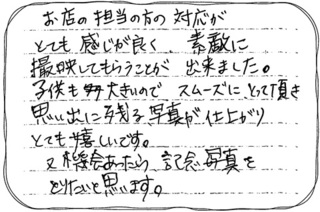 お店の担当の方の対応が
とても感じが良く、素敵に
撮映してもらうことが出来ました。
子供も大きいので スムーズにとって頂き
思い出に残る写真が仕上がり
とても嬉しいです。
又機会あったら、記念写真を
とりたいと思います。